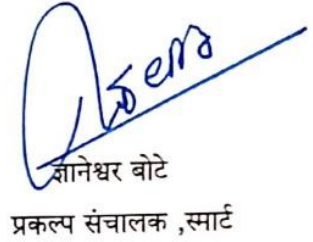 ज्ञानेश्वर बोटे
प्रकल्प संचालक ,स्मार्ट